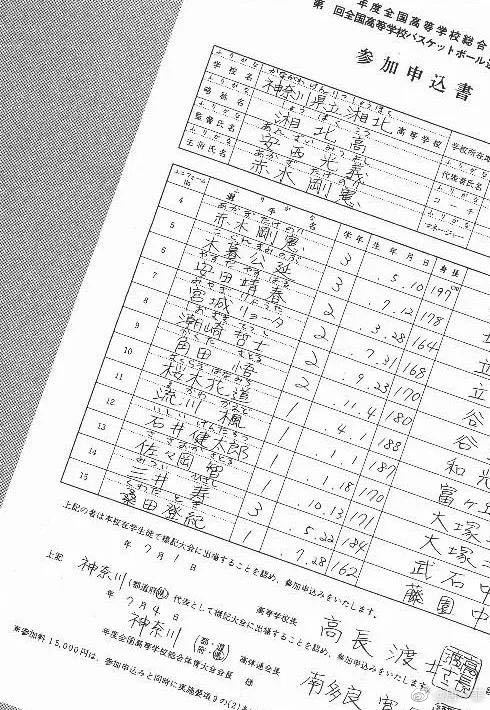 年度全国高等学校総合
第 回全国高等学校バスケットボール選
参加申込書
ふりがな かながわ けんりつ しょうほく
学校名 神奈川県立湘北 高等学校 学校所在地
ふりがな しょうほくこう
略称名 湘北高
ふりがな あんざい みつよし
監督氏名 安西光義 代表者氏名
ふりがな あかぎ たけのり
主将氏名 赤木剛憲 コーチ
マネージャー
ユニフォームNo. 選手名 学年 生年月日 身長
4 赤木剛憲 3 .5.10 197cm
5 木暮公延 3 .7.12 178
6 安田靖春 2 .3.28 164
7 宮城リョータ 2 .7.31 168
8 潮崎哲士 2 .9.23 170
9 角田悟 2 .11.4 180 谷
10 桜木花道 1 .4.1 188 和光
11 流川楓 1 .1.1 187 富ヶ丘
12 石井健太郎 1 .1.18 170 大塚
13 佐々岡智 1 .10.13 171 大塚
14 三井寿 3 .5.22 184 武石中
15 桑田登紀 1 .7.28 162 藤園中
上記の者は本校在学生徒で標記大会に出場することを認め、参加申込みをいたします。
年7月1日
高等学校長 高長渡
上記 神奈川 (都道府県) 代表として標記大会に出場することを認め、参加申込みをいたします。
年7月4日
神奈川 (都・道・府・県) 高体連会長 南多良
年度全国高等学校総合体育大会会長 様
※参加料15,000円は、参加申込みと同時に実施要項9の(2)